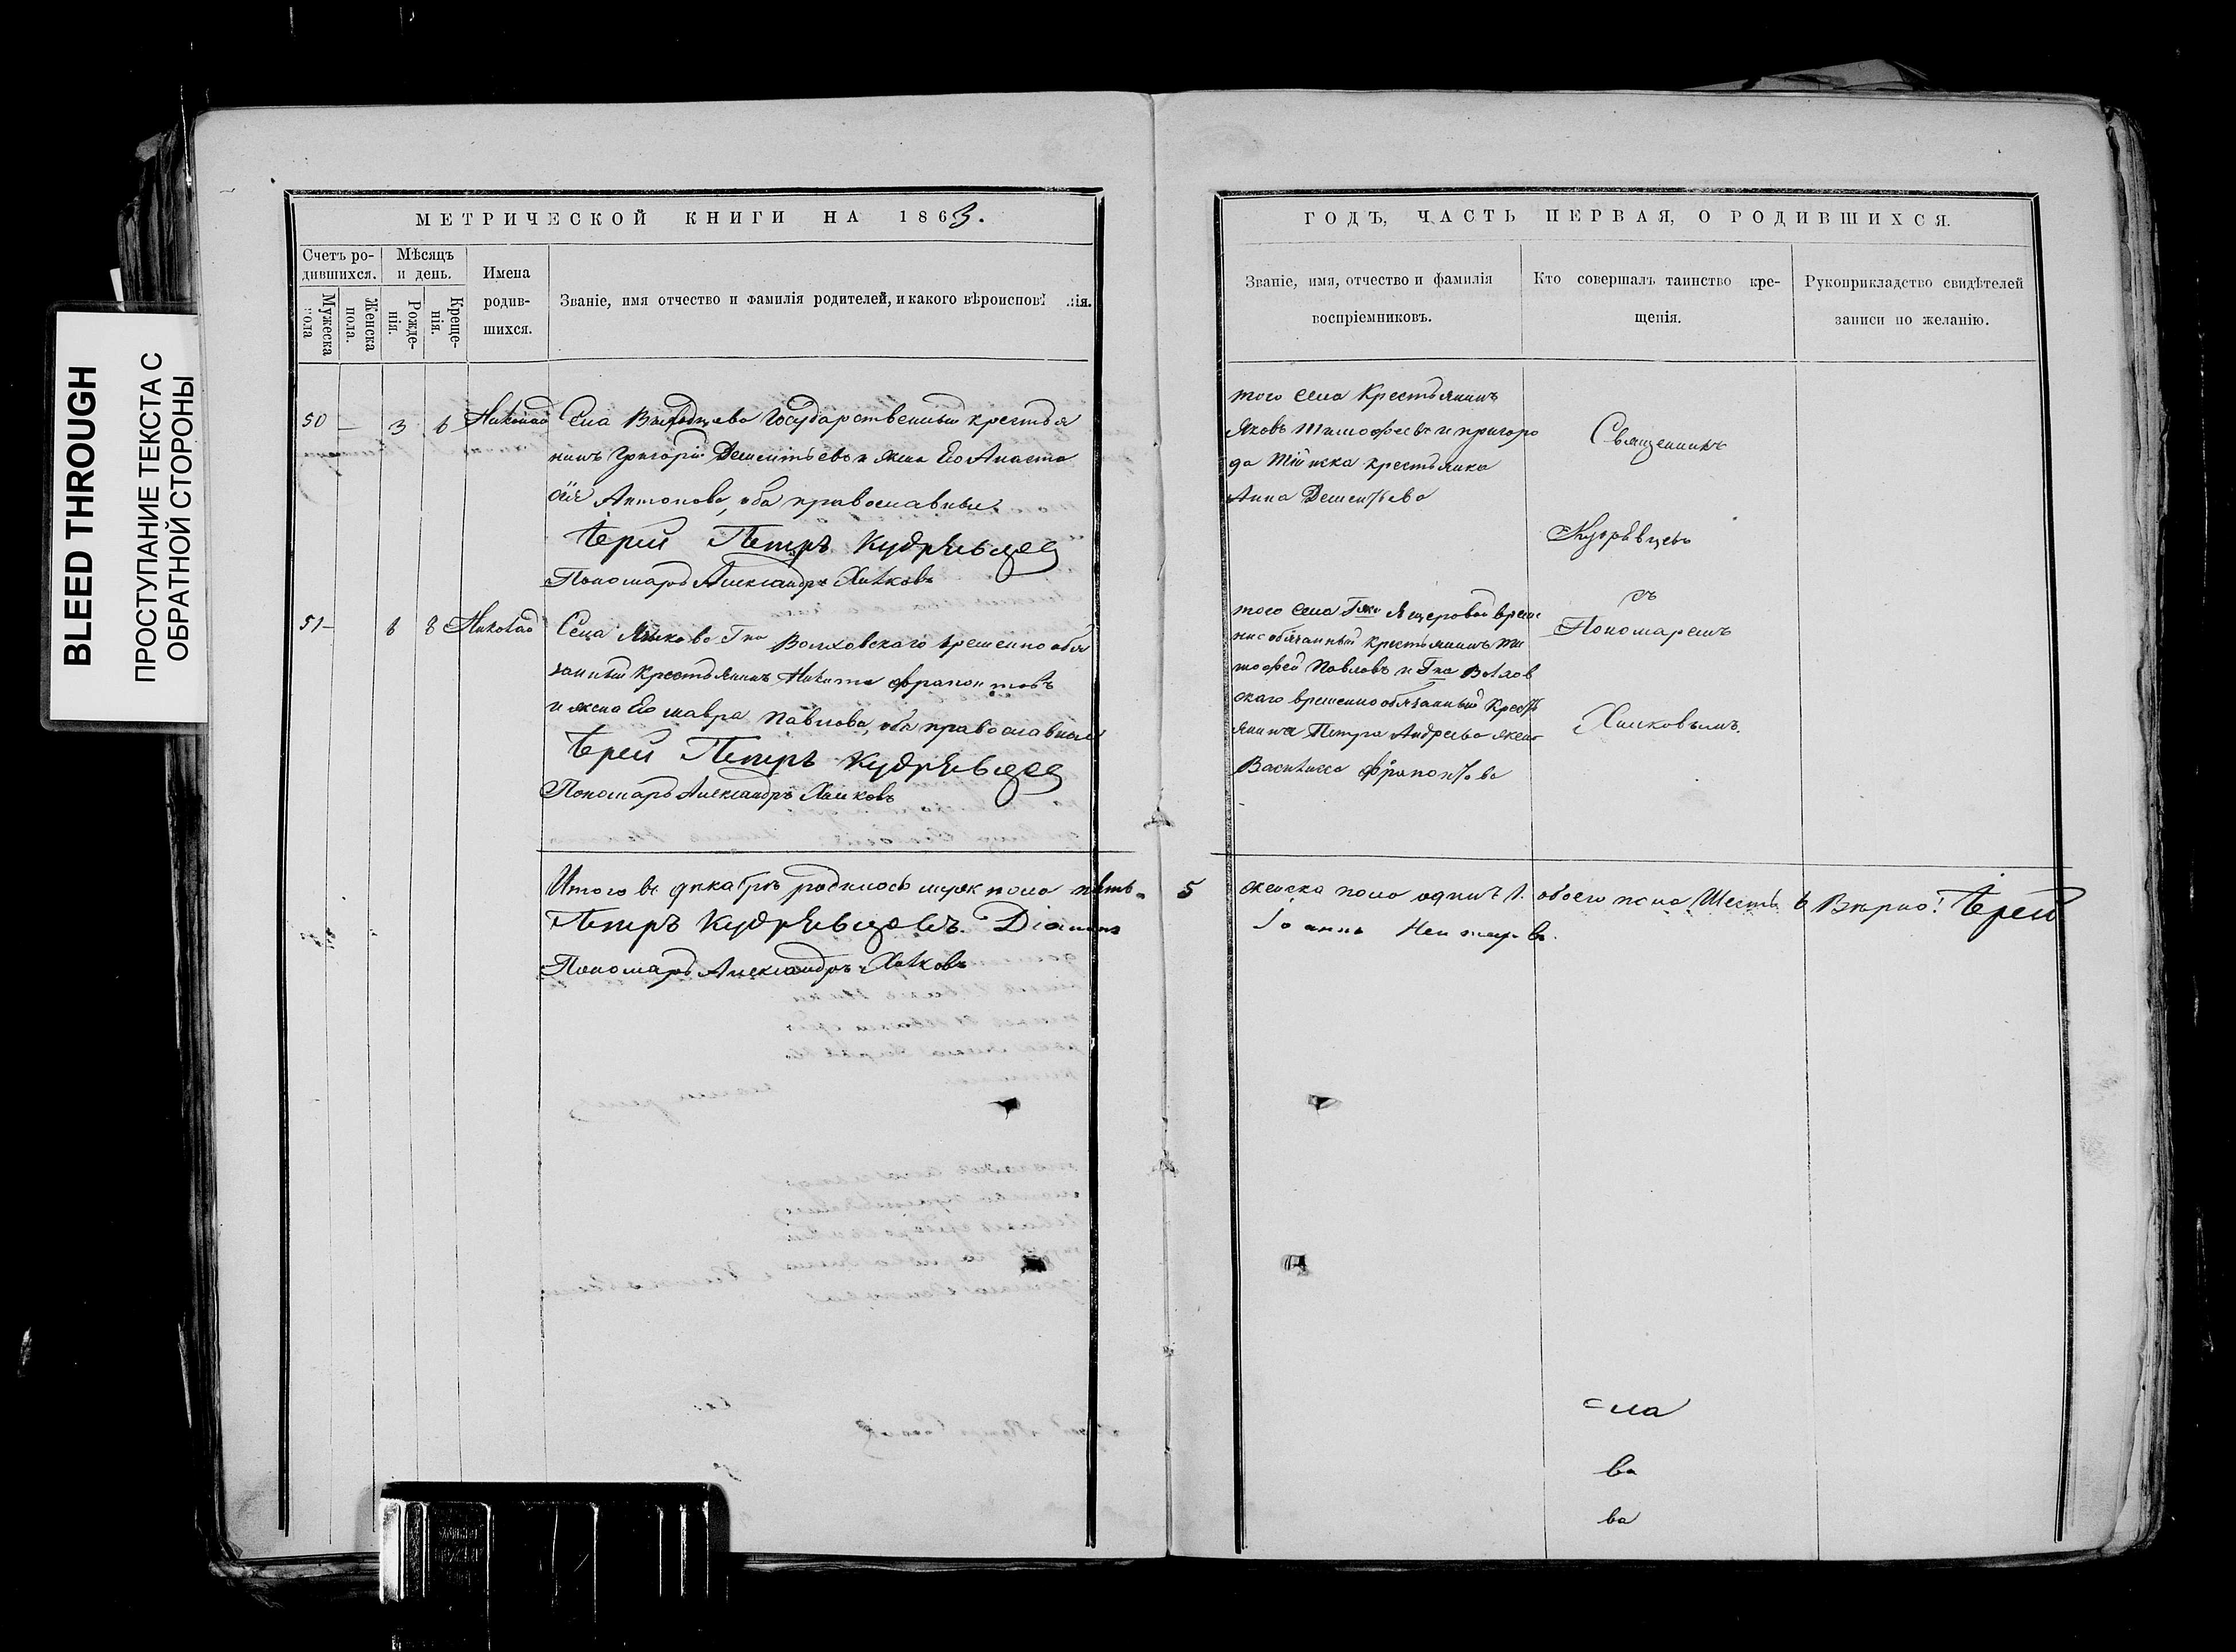 BLEED THROUGH
ПРОСТУПАНИЕ ТЕКСТА С
ОБРАТНОЙ СТОРОНЫ
МЕТРИЧЕСКОЙ КНИГИ НА 1863.
Счетъ ро-
дившихся.
Мужеска
пола
Женска
пола.
Мѣсяцъ
и день.
Рожде-
нія.
Креще-
нія.
Имена
родив-
шихся.
Званіе, имя отчество и фамилія родителей, и какого вѣроиспов
нія.
50 — 3 6 Николай
Села государственный крестья
нинъ Григорій Дементьевъ и жена Его Анаста
сія Антонова, оба православные
Іерей Петръ Кудрявцевъ
Пономарь Александръ Хилковъ
51 - 6 8 Николай
Села Г на Волховскаго временно обя
занный крестьянинъ Никита Ферапонтовъ
и жена Его Мавра Павлова, оба православные
Іерей Петръ Кудрявцевъ
Пономарь Александръ Хилковъ
Итого въ декабрѣ родилось муж пола пять.
Петръ Кудрявцевъ. Діаконъ
Пономарь Александръ Хилковъ
ГОДЪ, ЧАСТЬ ПЕРВАЯ, О РОДИВШИХСЯ.
Званіе, имя, отчество и фамилія
воспріемниковъ.
Кто совершалъ таинство кре-
щенія.
Рукоприкладство свидѣтелей
записи по желанію.
того села Крестьянинъ
Яковъ Тимофеевъ и пригоро
да Тіинска крестьянка
Анна Дементьева
Священникъ
Кудрявцевъ
съ
Пономаремъ
Хилковымъ.
того села Гжи Ящеровой време
нно обязанный крестьянинъ Ти
мофей Павловъ и Гна Волхов
скаго временно обязанный Кресть
янина Петра Андреева жена
Василиса Ферапонтова
5 женска пола одинъ 1. обоего пола Шесть 6 Вѣрно! Іерей
Іоаннъ
ла
ва
ва